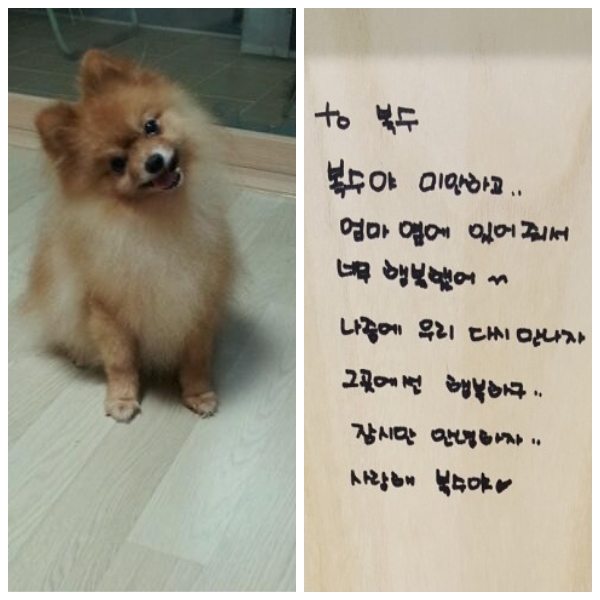 to 복수
복수야 미안하고..
엄마 옆에 있어줘서
너무 행복했어 ~
나중에 우리 다시 만나자
그곳에선 행복하구..
잠시만 안녕하자..
사랑해 복수야♥